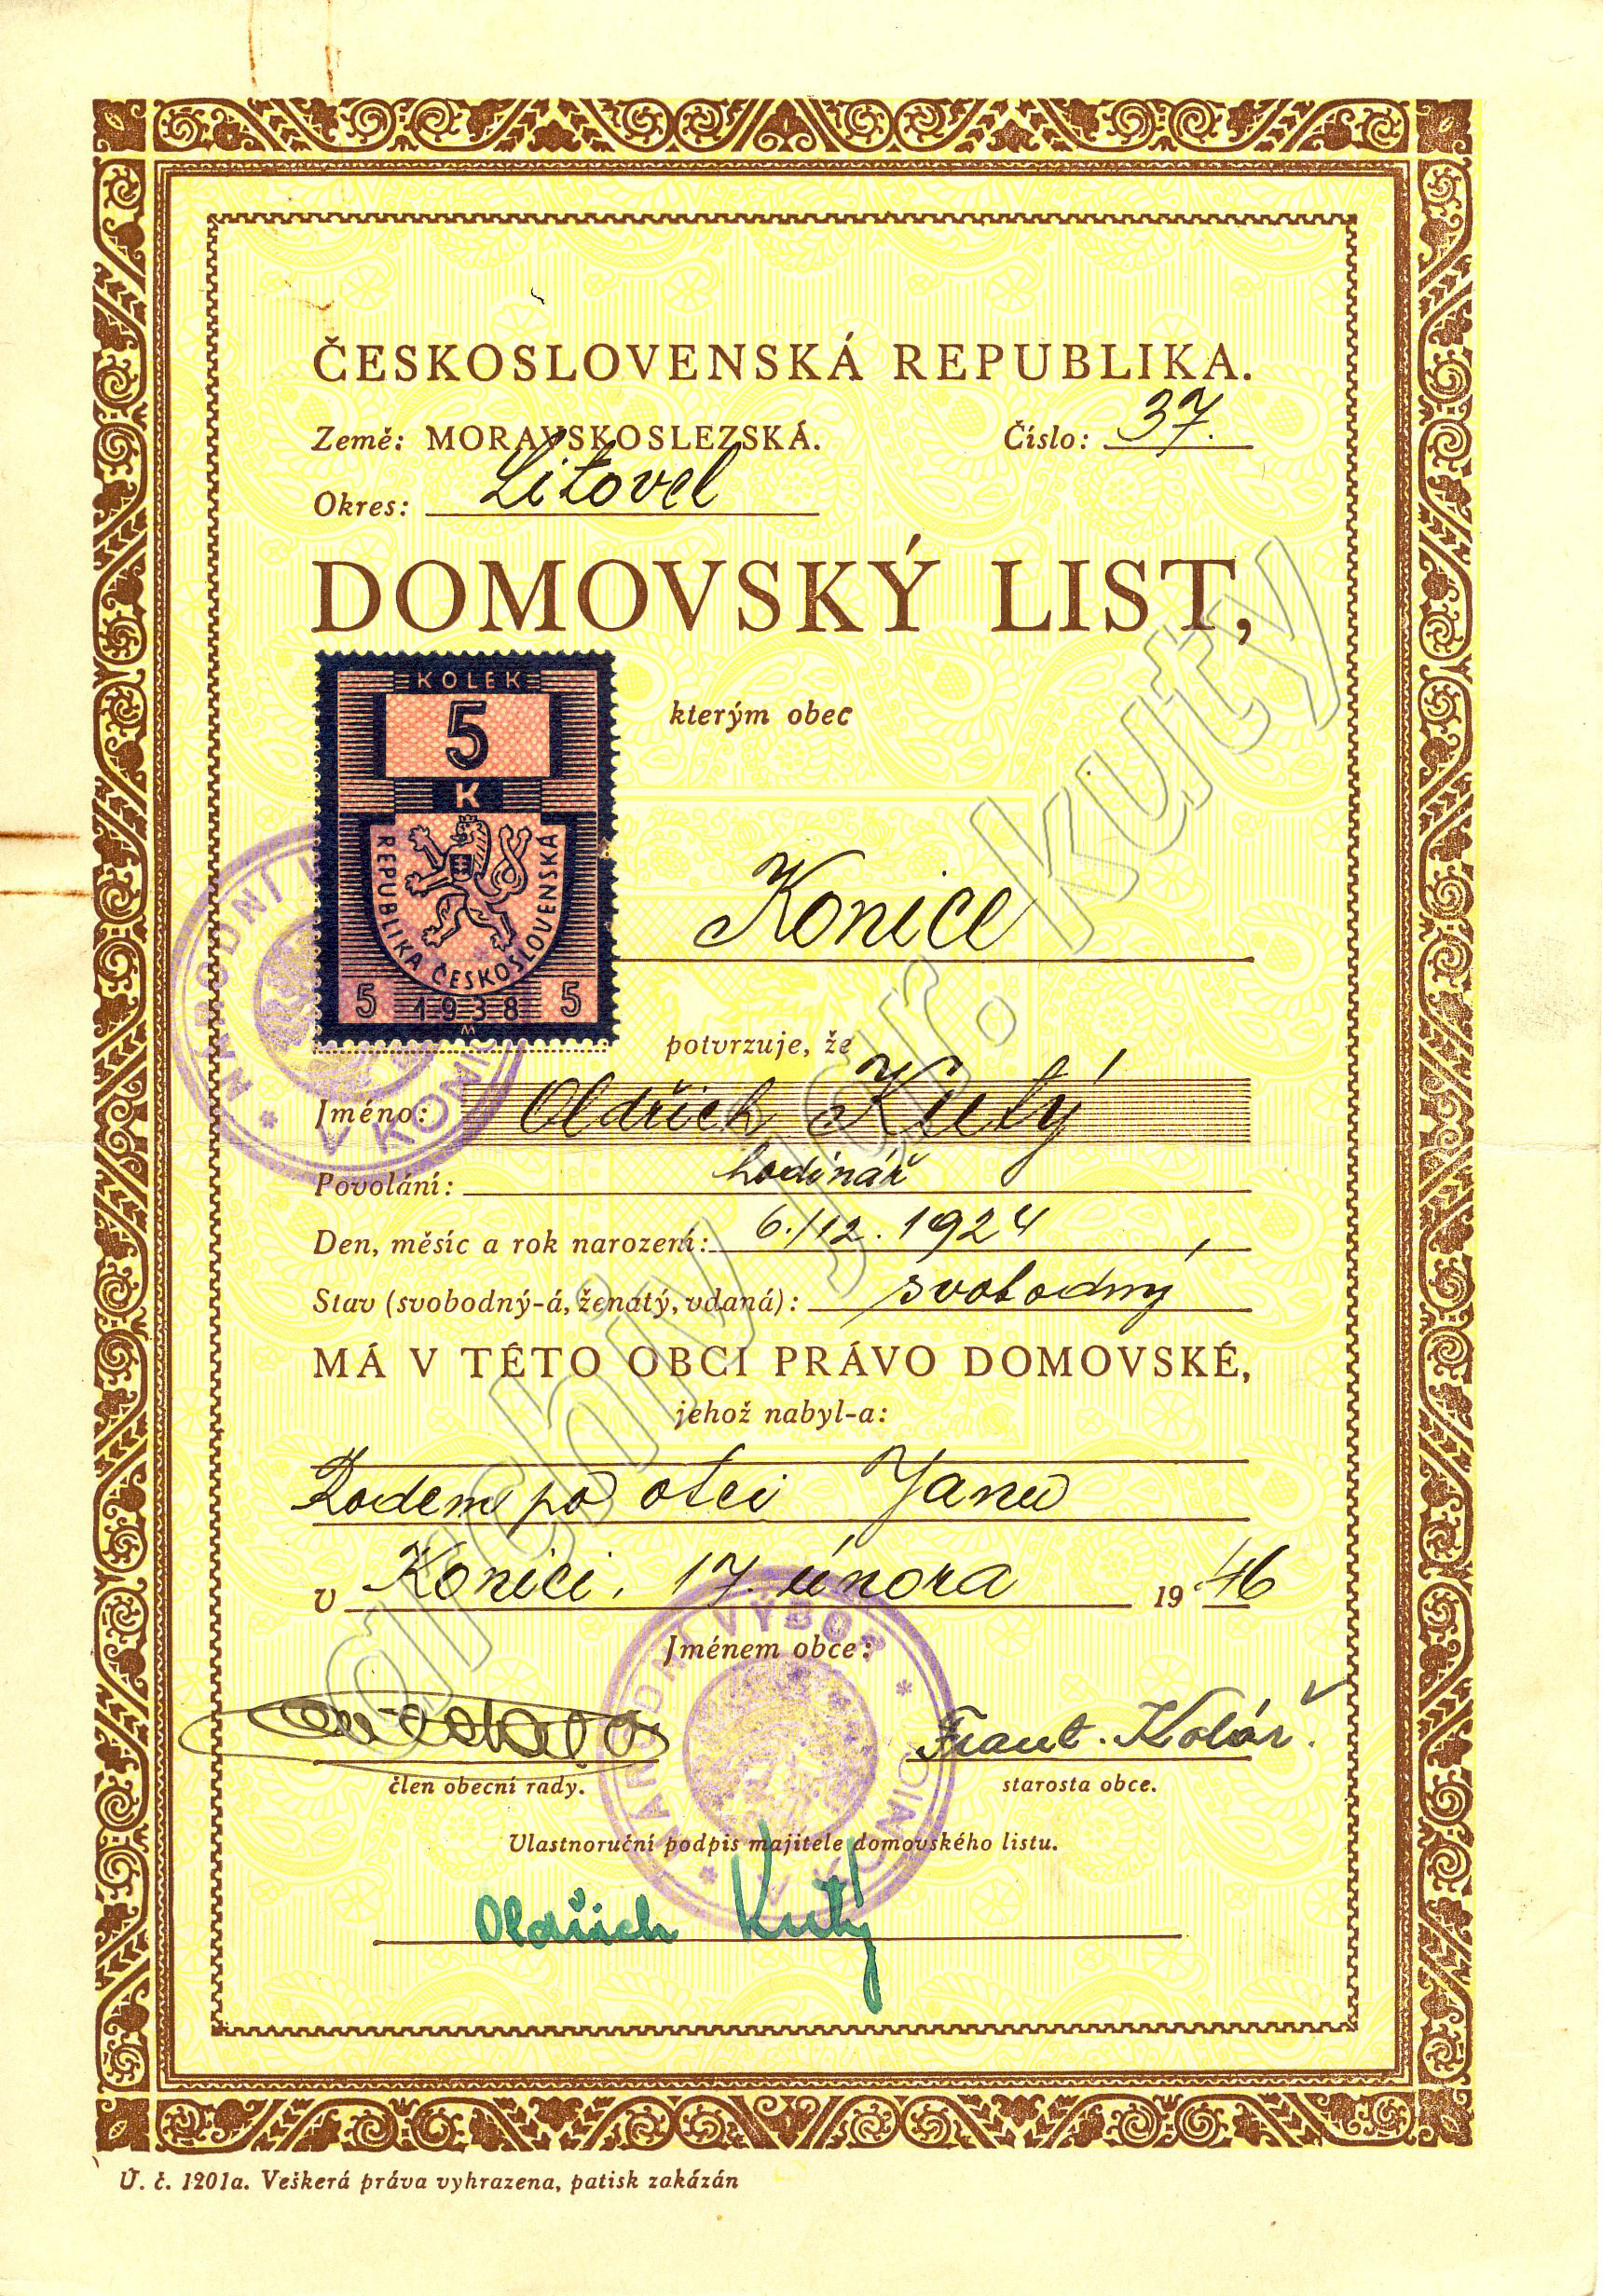 ČESKOSLOVENSKÁ REPUBLIKA.
Země: MORAVSKOSLEZSKÁ. Číslo: 37.
Okres: Litovel
DOMOVSKÝ LIST,
KOLEK
5
K
REPUBLIKA ČESKOSLOVENSKÁ
5 1938 5
M
kterým obec
Konice
potvrzuje, že
Jméno: Oldřich Kutý
Povolání: hodinář
Den, měsíc a rok narození: 6./12. 1924
Stav (svobodný-á, ženatý, vdaná): svobodný
MÁ V TÉTO OBCI PRÁVO DOMOVSKÉ,
jehož nabyl-a:
Rodem po otci Janu
v Konici, 17. února 1946
Jménem obce:
Frant. Kolář.
člen obecní rady. starosta obce.
Vlastnoruční podpis majitele domovského listu.
Oldřich Kutý
NÁRODNÍ
V KONICI
NÁRODNÍ VÝBOR
V KONICI
archiv jar. kuty
Ú. č. 1201a. Veškerá práva vyhrazena, patisk zakázán